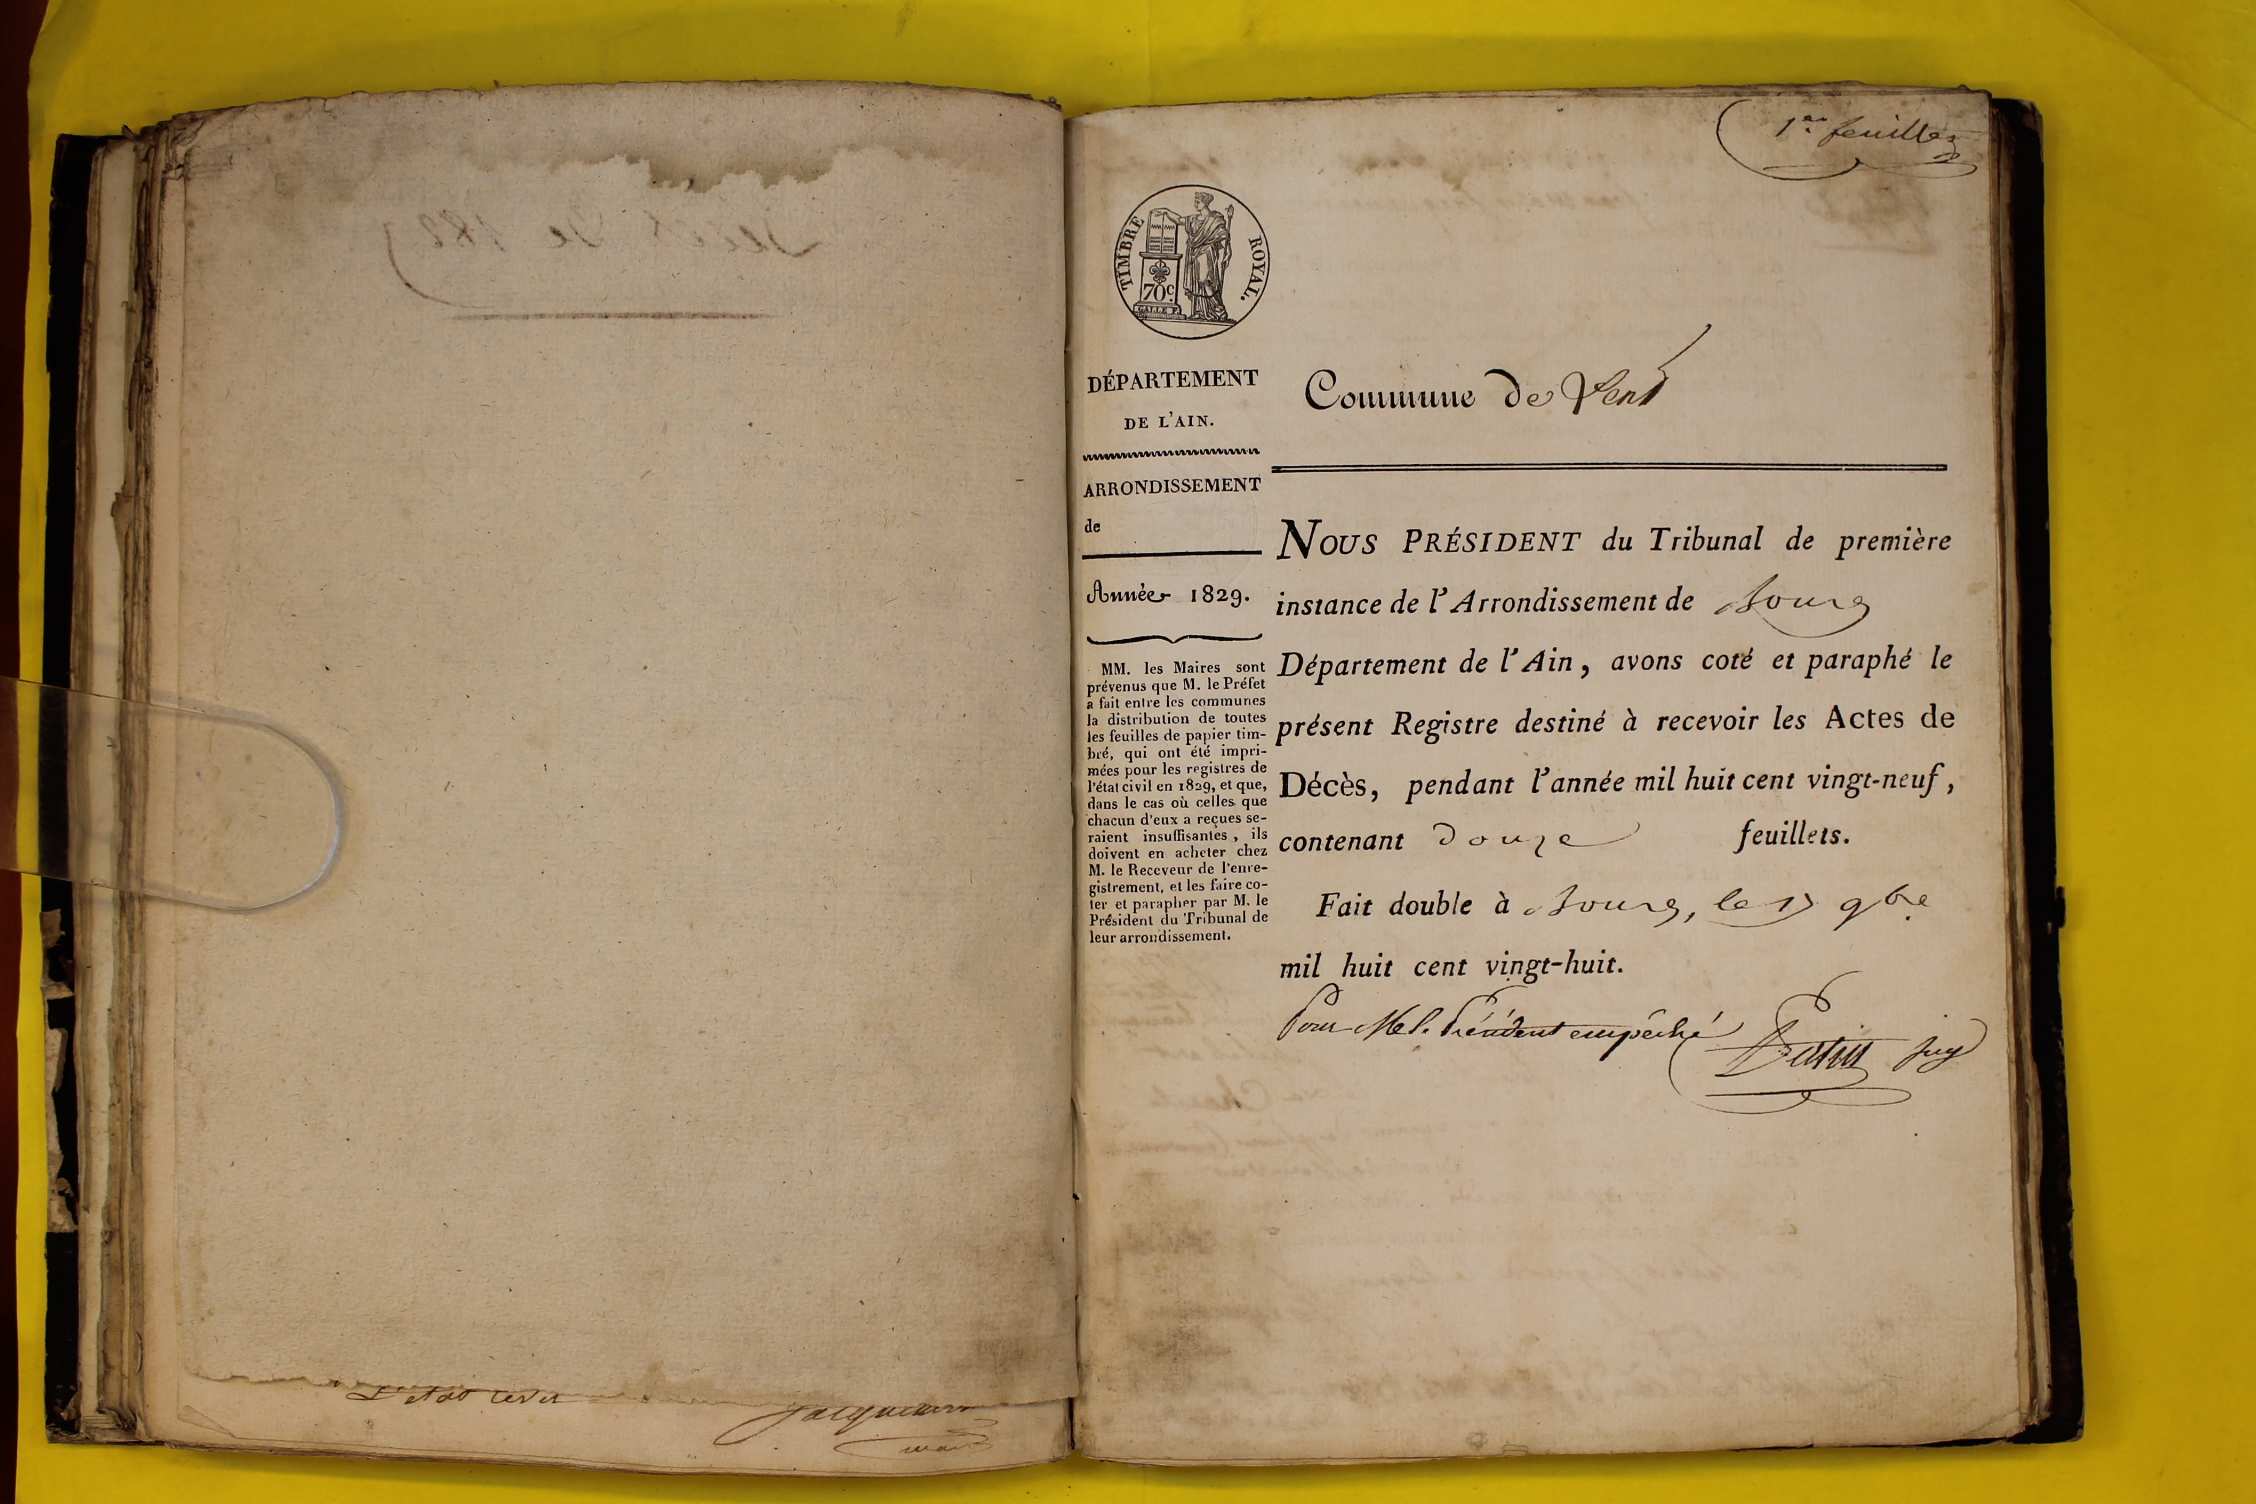 Décès de 1829
L'état civil
Jacquemin
maire
1er feuillet
TIMBRE ROYAL.
70c.
GALLE F.
DÉPARTEMENT
DE L'AIN.
ARRONDISSEMENT
de
Année 1829.
MM. les Maires sont
prévenus que M. le Préfet
a fait entre les communes
la distribution de toutes
les feuilles de papier tim-
bré, qui ont été impri-
mées pour les registres de
l'état civil en 1829, et que,
dans le cas où celles que
chacun d'eux a reçues se-
raient insuffisantes, ils
doivent en acheter chez
M. le Receveur de l'enre-
gistrement, et les faire co-
ter et parapher par M. le
Président du Tribunal de
leur arrondissement.
Commune de
NOUS PRÉSIDENT du Tribunal de première
instance de l'Arrondissement de Bourg
Département de l'Ain, avons coté et paraphé le
présent Registre destiné à recevoir les Actes de
Décès, pendant l'année mil huit cent vingt-neuf,
contenant douze feuillets.
Fait double à Bourg, le 17 9bre
mil huit cent vingt-huit.
Pour M. le Président empêché
juge